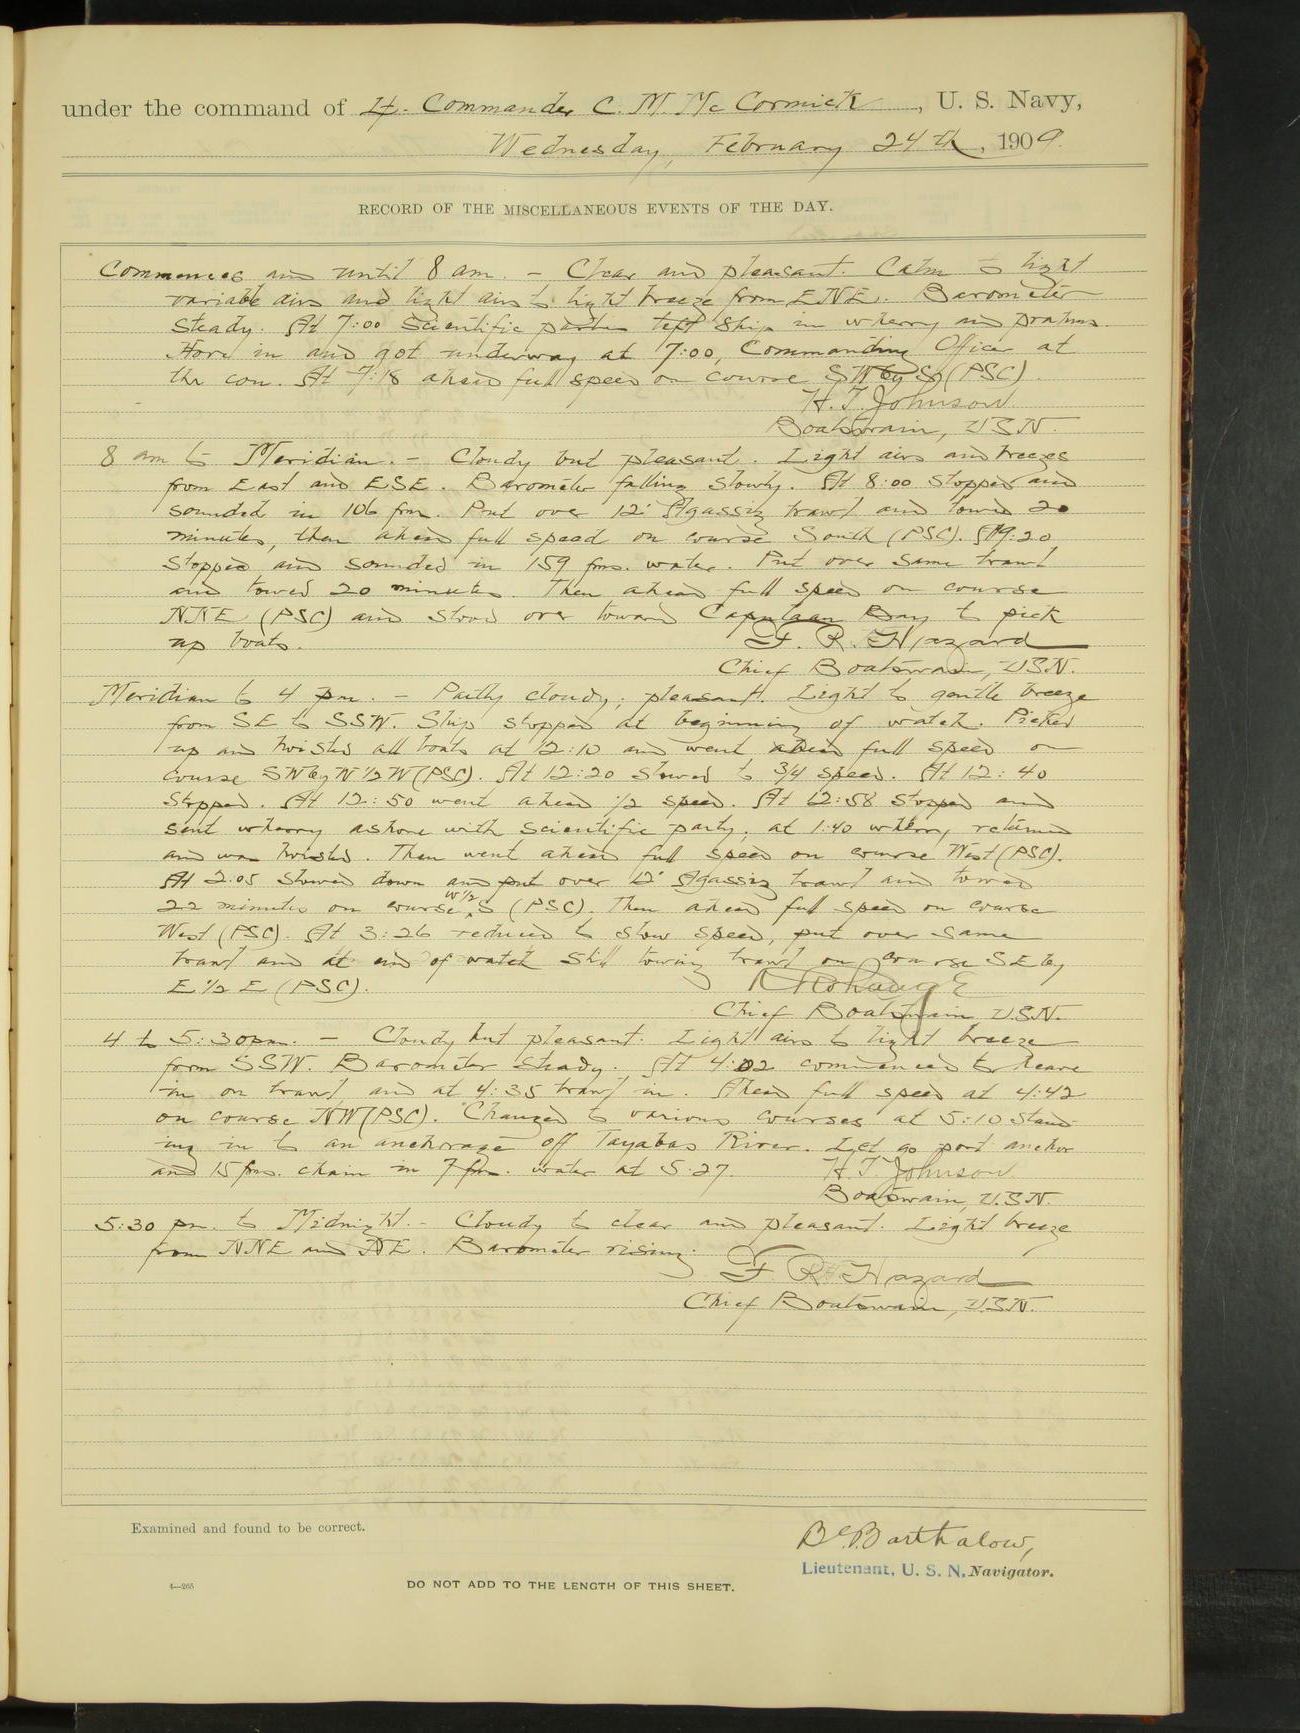 under the command of Lt. Commander C. M. McCormick, U. S. Navy,
Wednesday, February 24th, 1909.
RECORD OF THE MISCELLANEOUS EVENTS OF THE DAY.
Commences and until 8 am. - Clear and pleasant. Calm to light
variable airs and light airs to light breeze from ENE. Barometer
steady. At 7:00 Scientific parties left ship in wherry and prahms.
Hove in and got underway at 7:00, Commanding Officer at
the con. At 7:18 ahead full speed on course SW by S (PSC).
H. T. Johnson
Boatswain, USN.
8 am to Meridian. - Cloudy but pleasant. Light airs and breezes
from East and ESE. Barometer falling slowly. At 8:00 stopped and
sounded in 106 fms. Put over 12' Agassiz trawl and towed 20
minutes, then ahead full speed on course South (PSC). At 9:20
stopped and sounded in 159 fms. water. Put over same trawl
and towed 20 minutes. Then ahead full speed on course
NNE (PSC) and stood over toward Capulaan Bay to pick
up boats. F. R. Hazard
Chief Boatswain, USN.
Meridian to 4 pm. - Partly cloudy; pleasant. Light to gentle breeze
from SE to SSW. Ship stopped at beginning of watch. Picked
up and hoisted all boats at 12:10 and went ahead full speed on
course SW by W 1/2 W (PSC). At 12:20 slowed to 3/4 speed. At 12:40
stopped. At 12:50 went ahead 1/2 speed. At 12:58 stopped and
sent wherry ashore with scientific party; at 1:40 wherry returned
and was hoisted. Then went ahead full speed on course West (PSC).
At 2:05 slowed down and put over 12' Agassiz trawl and towed
22 minutes on course W 1/2 S (PSC). Then ahead full speed on course
West (PSC). At 3:26 reduced to slow speed, put over same
trawl and at end of watch still towing trawl on course SE by
E 1/2 E (PSC).
Chief Boatswain USN.
4 to 5:30 pm. - Cloudy but pleasant. Light airs to light breeze
form SSW. Barometer steady. At 4:02 commenced to heave
in on trawl, and at 4:35 trawl in. Ahead full speed at 4:42
on course NW (PSC). Changed to various courses at 5:10 stand-
ing in to an anchorage off Tayabas River. Let go port anchor
and 15 fms. chain in 7 fms. water at 5:27. H. T. Johnson
Boatswain, U.S.N.
5:30 pm. to Midnight. - Cloudy to clear and pleasant. Light breeze
from NNE and NE. Barometer rising.
F. R. Hazard
Chief Boatswain, U.S.N.
Examined and found to be correct.
Bartholow,
Lieutenant, U. S. N. Navigator.
4—265
DO NOT ADD TO THE LENGTH OF THIS SHEET.